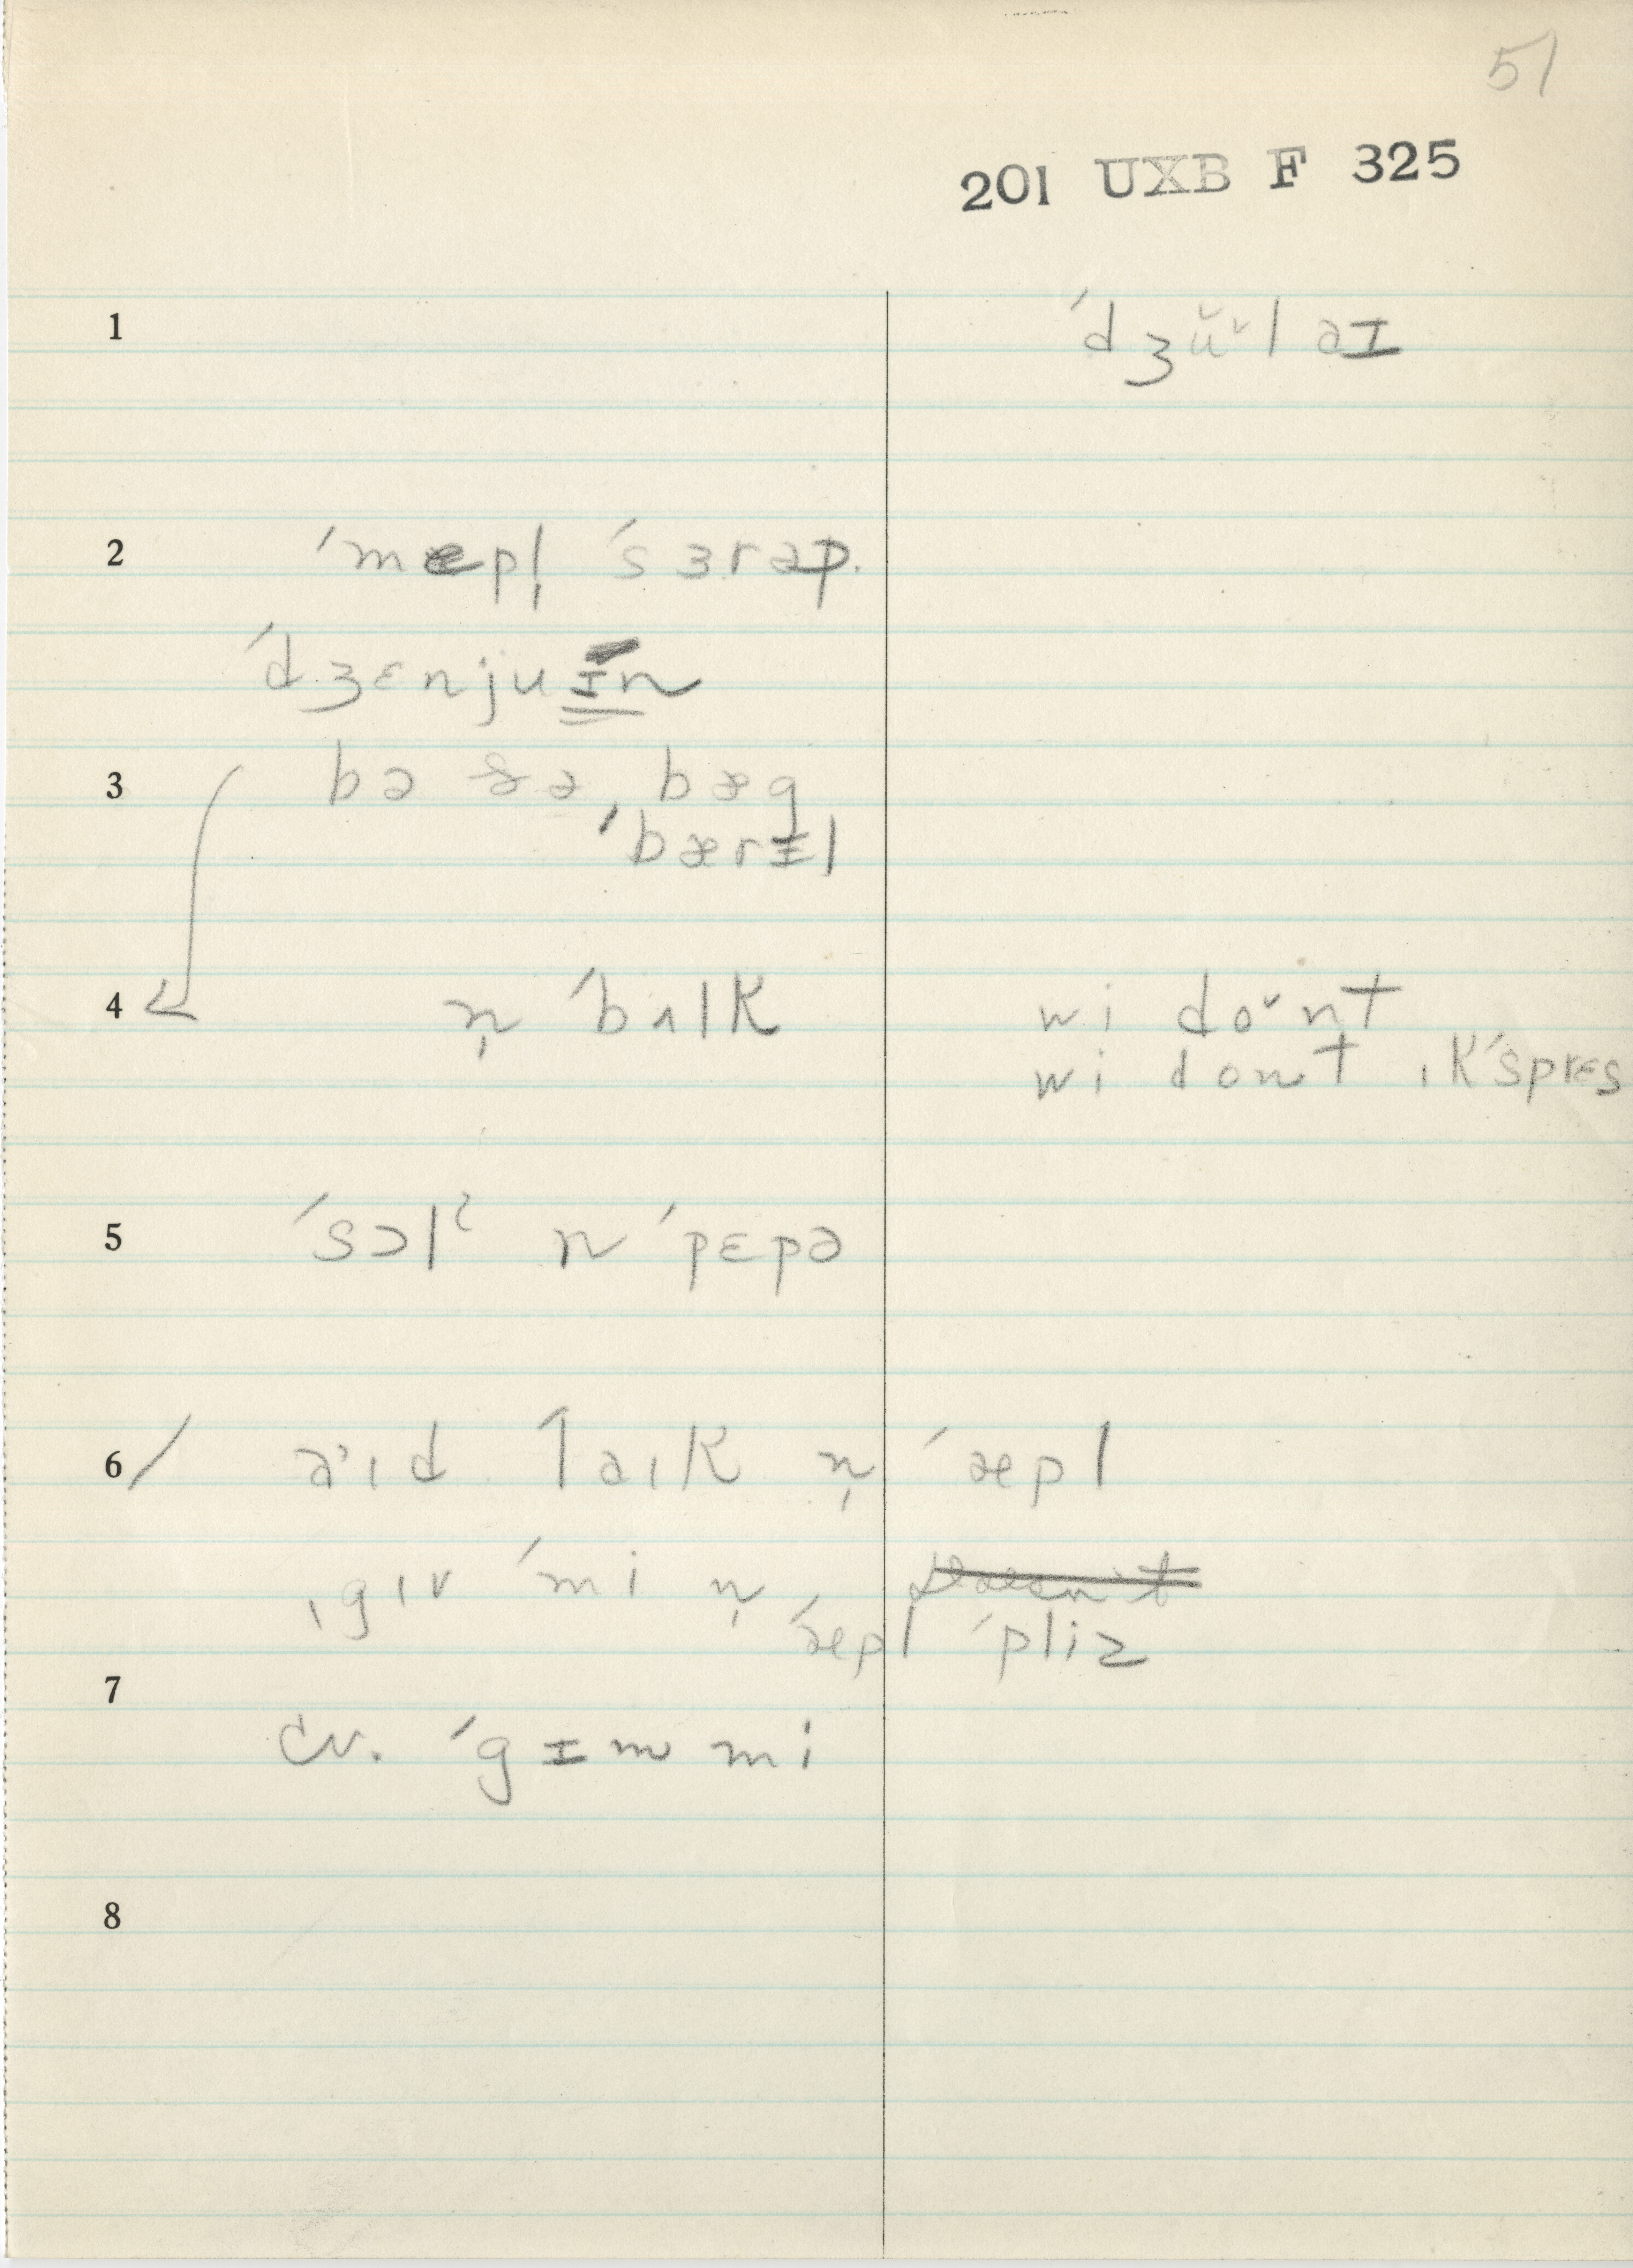 51
201 UXB F 325
1 ˈdʒŭᵛlaɪ
2 ˈmepl̩ ˈsɜrəp.
ˈdʒɛnjuɪn
3 bə ðə bæg
ˈbærɪl
4 n̩ ˈbʌlk wi doᵛnt
wi dont ɪkˈsprɛs
5 ˈsɔlˀ n ˈpɛpə
6 əˑɪd ˈləɪk n̩ ˈæpl
ˌgɪv ˈmi n̩ doesn't
ˈæpl ˈpliz
7
cv. ˈgɪm mi
8